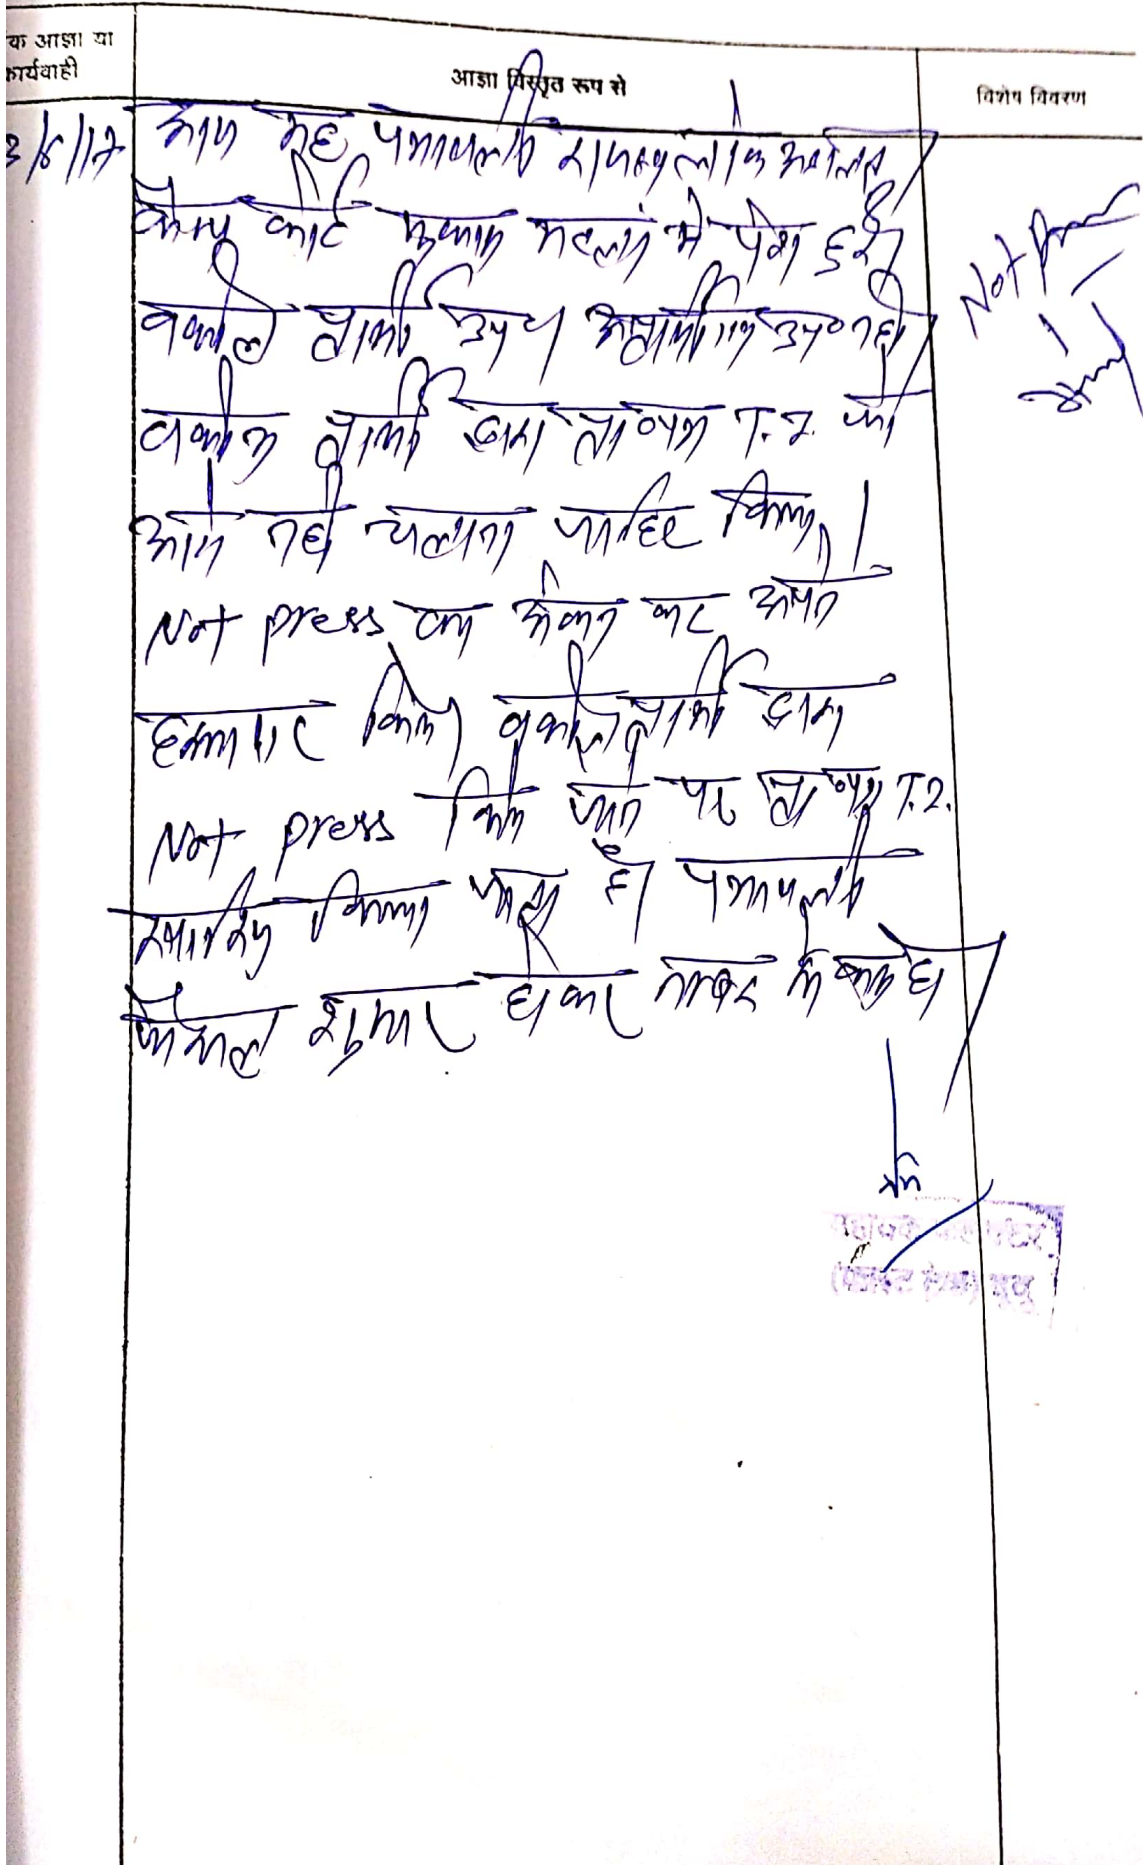 क आज्ञा या
कार्यवाही
आज्ञा विस्तृत रूप से
विशेष विवरण
3/6/17 आज यह पत्रावली राजस्व लोक अदालत
कैम्प कोर्ट मुकाम में पेश हुई।
वकील प्रार्थी उप। अप्रार्थीगण उप० नही।
वकील प्रार्थी द्वारा प्रा०पत्र T.I. को
आगे नही चलाना जाहिर किया।
Not press का अंकन कर अपने
हस्ताक्षर किये। वकील प्रार्थी द्वारा
Not press किये जाने पर प्रा०पत्र T.I.
खारिज किया जाता है। पत्रावली
फैसल शुमार होकर नम्बर से कम हो।
Not press